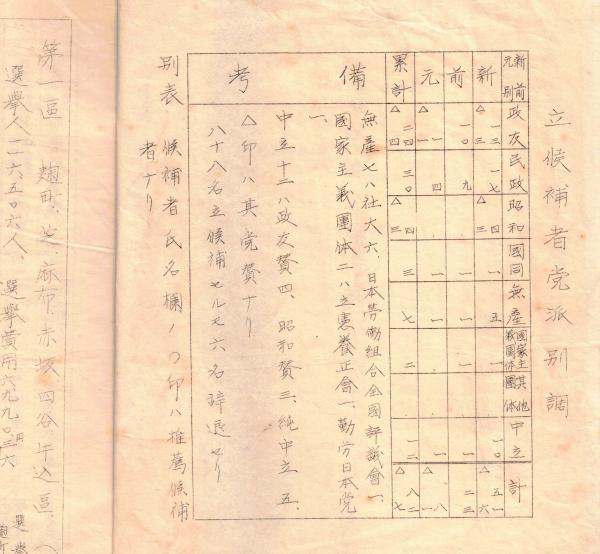 立候補者党派別調
新前元別 政友 民政 昭和 國同 無産 國家主義團体 其他團体 中立 計
新 △三 一三 一七 △三 四 一 五 一 一〇 △六 五一
前 一〇 九 一 一 一 一 二三
元 △一 一 四 一 一 一 △一 八
累計 △四 二四 三〇 △三 四 三 七 二 一二 △七 八二
備考
無産七ハ社大六、日本勞働組合全國評議會一、
國家主義團体二ハ立憲養正會一、勤労日本党
一、
中立十二ハ政友賛四、昭和賛三、純中立五、
△印ハ其党賛ナリ
八十八名立候補セルモ六名辞退セリ
別表 候補者氏名欄ノ〇印ハ推薦候補
者ナリ
第一區 麹町、芝、麻布、赤坂、四谷、牛込區、(
選擧人一二六五〇六人、選擧費用六九九〇円三六
選擧